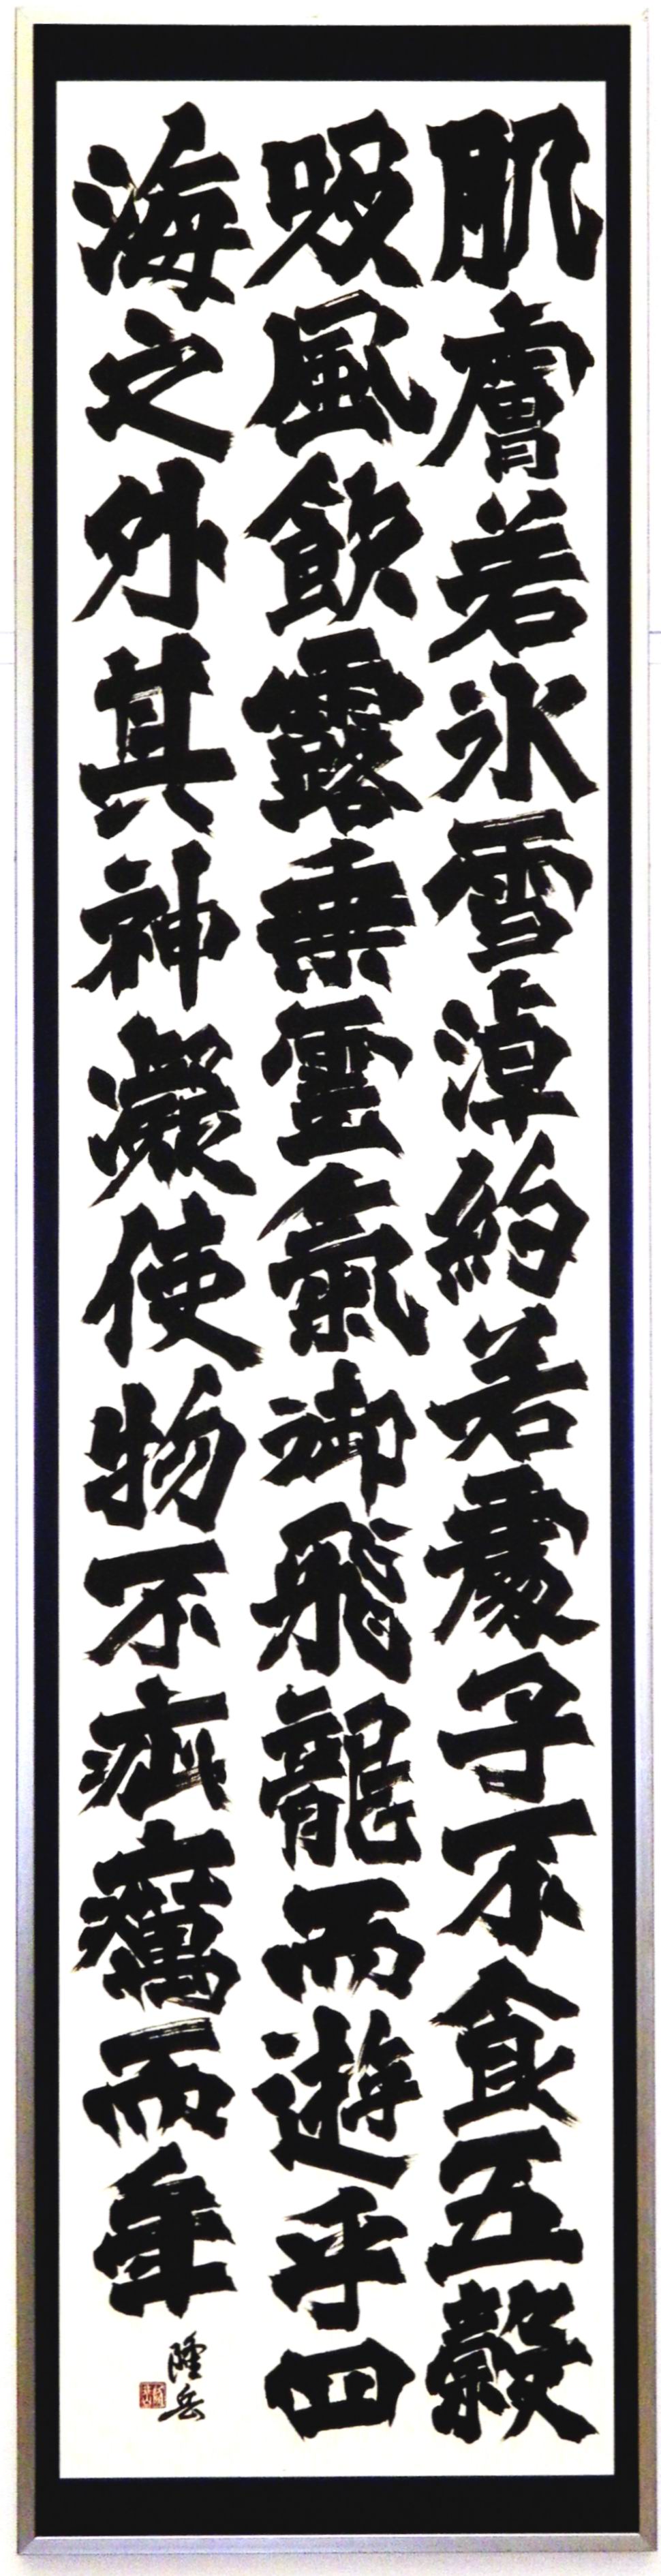 肌膚若氷雪淖約若處子不食五穀
吸風飲露乗雲氣御飛龍而遊乎四
海之外其神凝使物不疵癘而年
隆岳